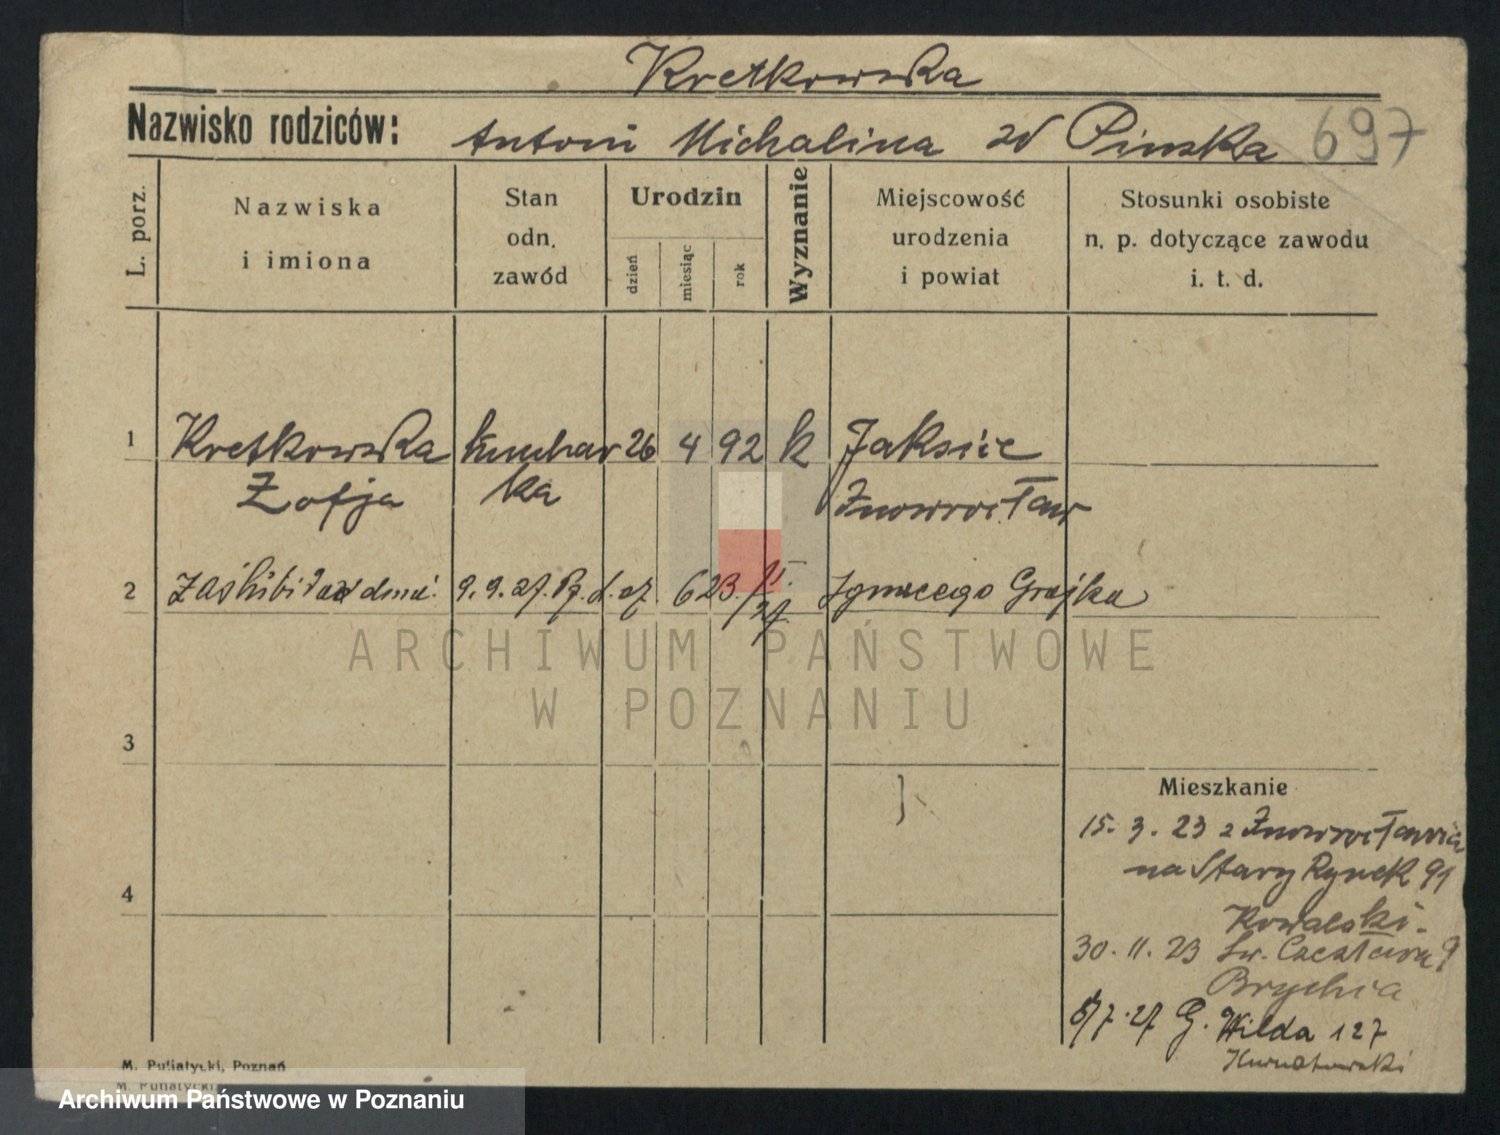 Kretkowska
Nazwisko rodziców: Antoni Michalina zd Pinska 697
L. porz.
Nazwiska
i imiona
Stan
odn.
zawód
Urodzin
dzień
miesiąc
rok
Wyznanie
Miejscowość
urodzenia
i powiat
Stosunki osobiste
n. p. dotyczące zawodu
i. t. d.
1 Kretkowska kuchar 26 4 92 k Jaksice
Zofja ka Inowrocław
2 zaślubiła dnia 9. 9. 27. Ignacego Grajka
ARCHIWUM PAŃSTWOWE
W POZNANIU
3
Mieszkanie
15. 3. 23 z Inowrocławia
na Stary Rynek 91
4
Kowalski.
30. 11. 23 Św. Czesława 9
Brychia
6/7. 27 G. Wilda 127
Kurnatowski
M. Putiatycki, Poznań
M. Putiatycki,
Archiwum Państwowe w Poznaniu